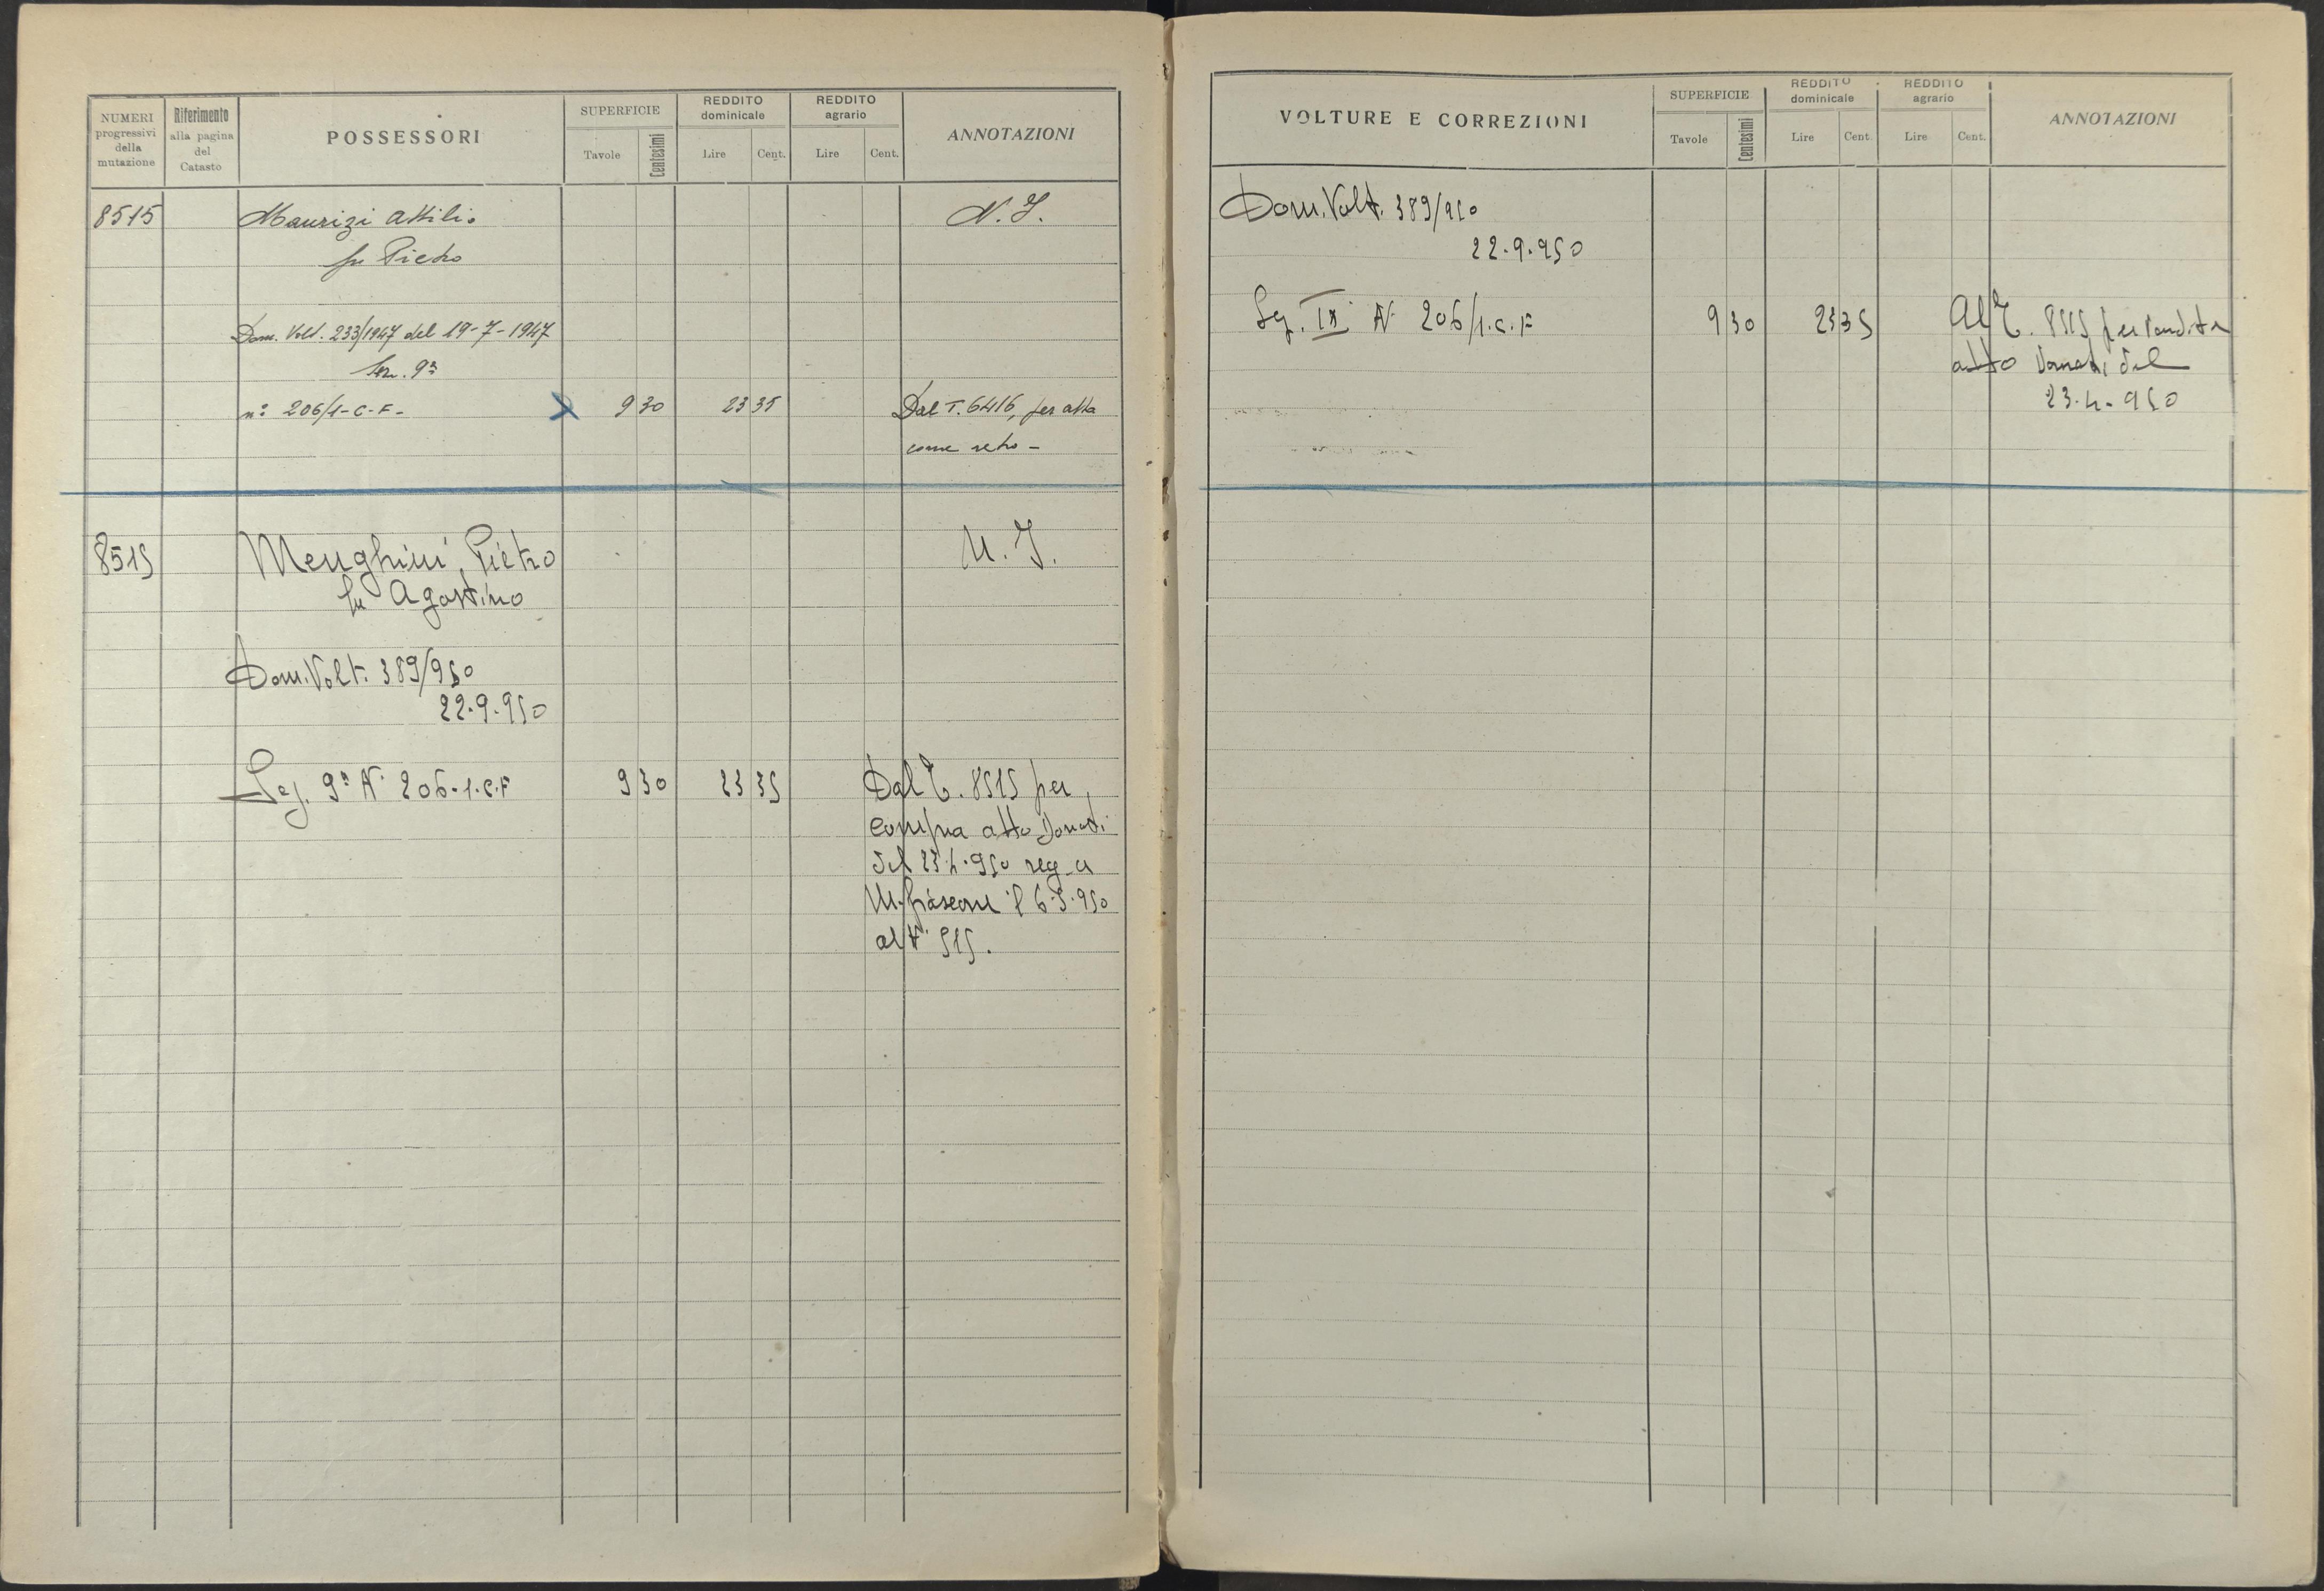 NUMERI
progressivi
della
mutazione
Riferimento
alla pagina
del
Catasto
POSSESSORI
SUPERFICIE
Tavole
Centesimi
REDDITO
dominicale
Lire
Cent.
REDDITO
agrario
Lire
Cent.
ANNOTAZIONI
8515
Maurizi Attilio
fu Pietro
N. I.
Dom. Volt. 233/1947 del 19-7-1947
Sez. 9ª
n: 206/1-C.F. 9 30 23 35
Dal T. 6416, per atto
come retro -
8515
Menghini Pietro
fu Agostino
N. I.
Dom. Volt. 389/950
22.9.950
Sez. 9ª N. 206.1.C.F 9 30 23 35
Dal T. 8515 per
compra atto Donati
del 23.4.950 reg. a
M.fiascone il 6.5.950
al N. 515.
VOLTURE E CORREZIONI
SUPERFICIE
Tavole
Centesimi
REDDITO
dominicale
Lire
Cent.
REDDITO
agrario
Lire
Cent.
ANNOTAZIONI
Dom. Volt. 389/950
22.9.950
Sez. IX N. 206/1.C.F 9 30 23 35
Al T. 8515 per vendita
atto Donati del
23.4.950